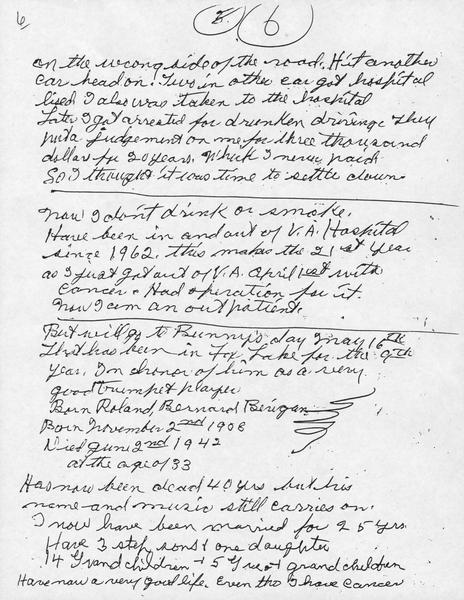 6 2. 6
on the wrong side of the road. Hit another
car head on. Two in other car got hospital
lised I also was taken to the hospital
Later I got arrested for drunken driving. They
put a judgement on me for three thousand
dollar for 20 years. Which I never paid
So I thought it was time to settle down.
Now I don't drink or smoke.
Have been in and out of V.A. Hospital
since 1962. this makes the 21st year
as I just got out of V.A. April 1st with
cancer. Had operation for it.
Now I am an out patient.
But will go to Bunny's day May 16th
That has been in Fox Lake for the 9th
year. In honor of him as a very
good trumpet player
Born Roland, Bernard Berigan
Born November 2nd 1908
Died June 2nd 1942
at the age of 33
Has now been dead 40 yrs but his
name and music still carries on.
I now have been married for 25 yrs
Have 3 step sons & one daughter
14 Grandchildren + 5 Great grand children
Have now a very good life. Even tho I have cancer